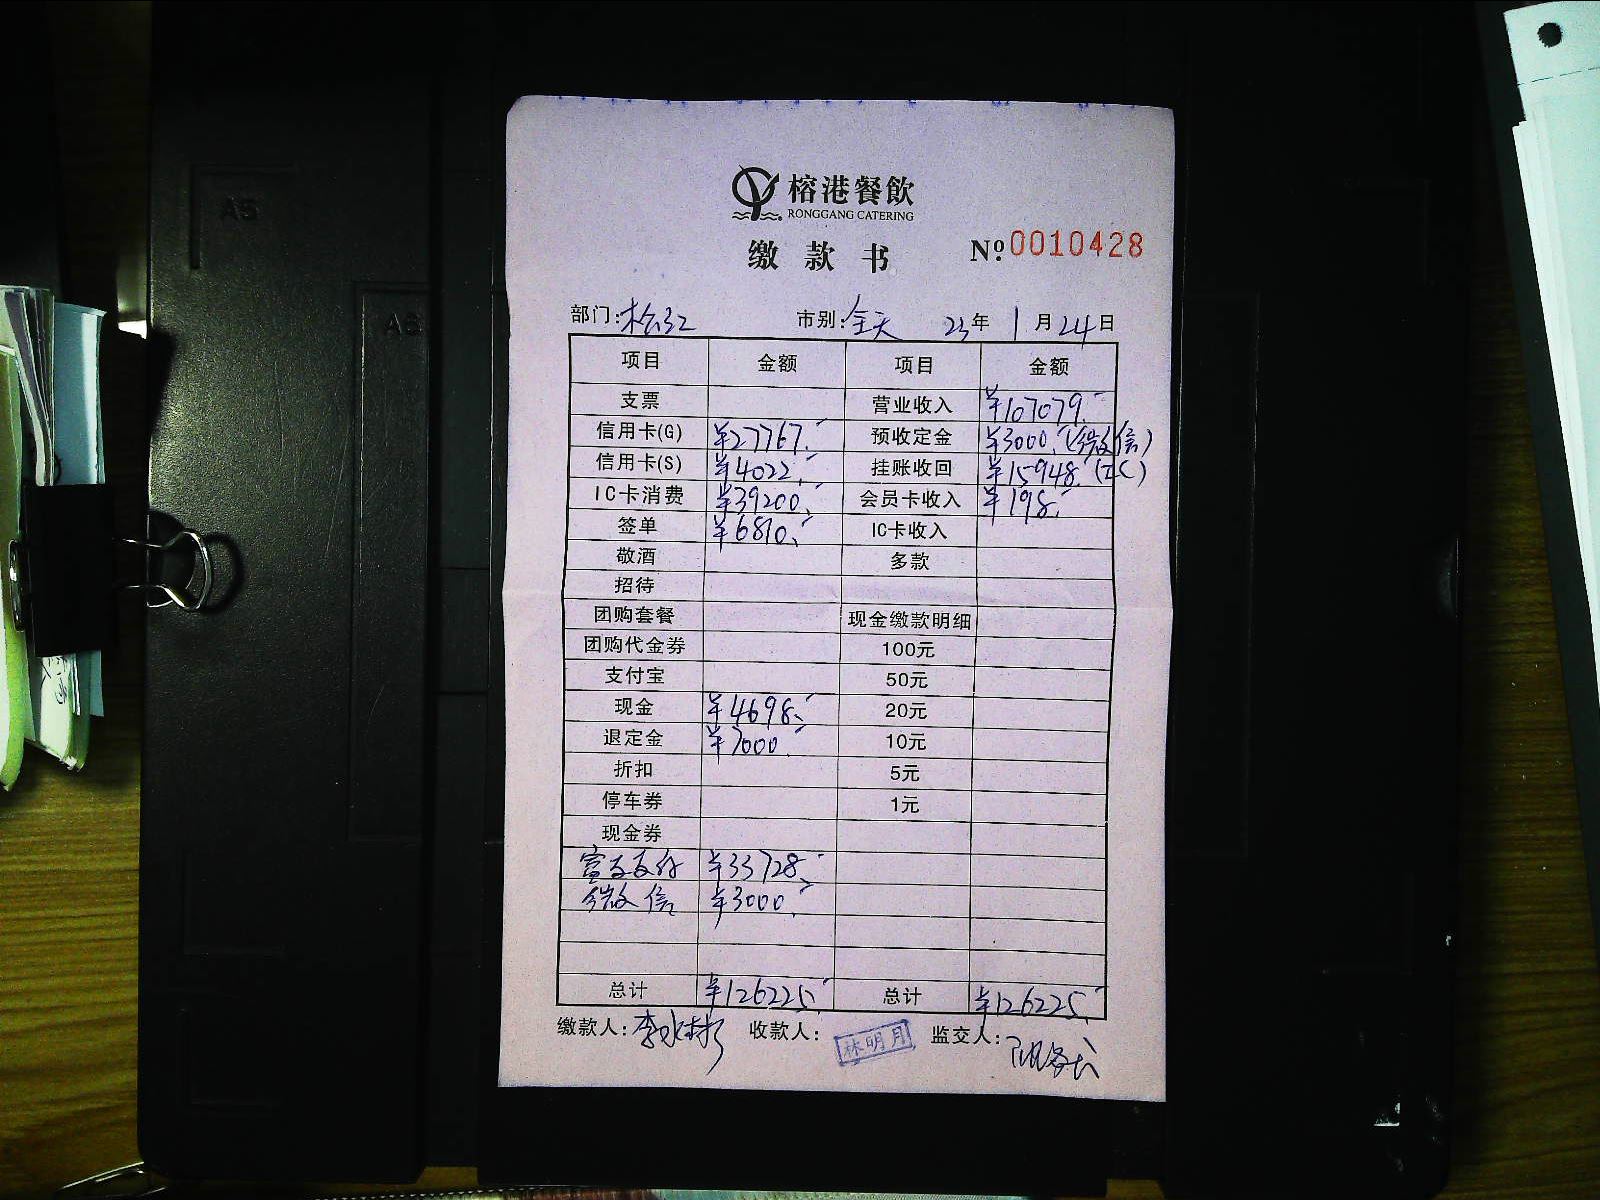 A5
A6
榕港餐飲
RONGGANG CATERING
缴款书 Nº:0010428
部门:松江 市别:全天 23年 1月24日
项目 金额 项目 金额
支票 营业收入 ¥107079.-
信用卡(G) ¥27767.- 预收定金 ¥3000.-(微信)
信用卡(S) ¥4022.- 挂账收回 ¥15948.-(IC)
IC卡消费 ¥39200.- 会员卡收入 ¥198.-
签单 ¥6810.- IC卡收入
敬酒 多款
招待
团购套餐 现金缴款明细
团购代金券 100元
支付宝 50元
现金 ¥4698.- 20元
退定金 ¥7000.- 10元
折扣 5元
停车券 1元
现金券
富友支付 ¥33728.-
微信 ¥3000.-
总计 ¥126225.- 总计 ¥126225.-
缴款人:李 收款人: 林明月 监交人: